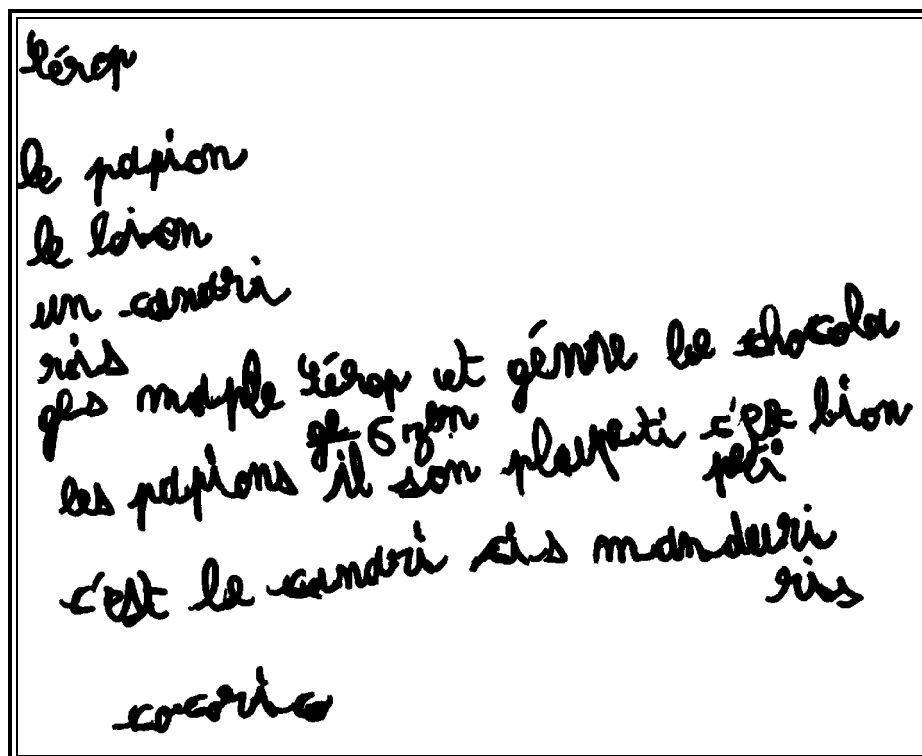 térop
le papion
le loion
un canari
ris
ges maple térop et génre le chocola
ge 6 zon
les papions il son plaupeti c'est bion
peti
c'est le canari sis man deuri
ris
cocorico